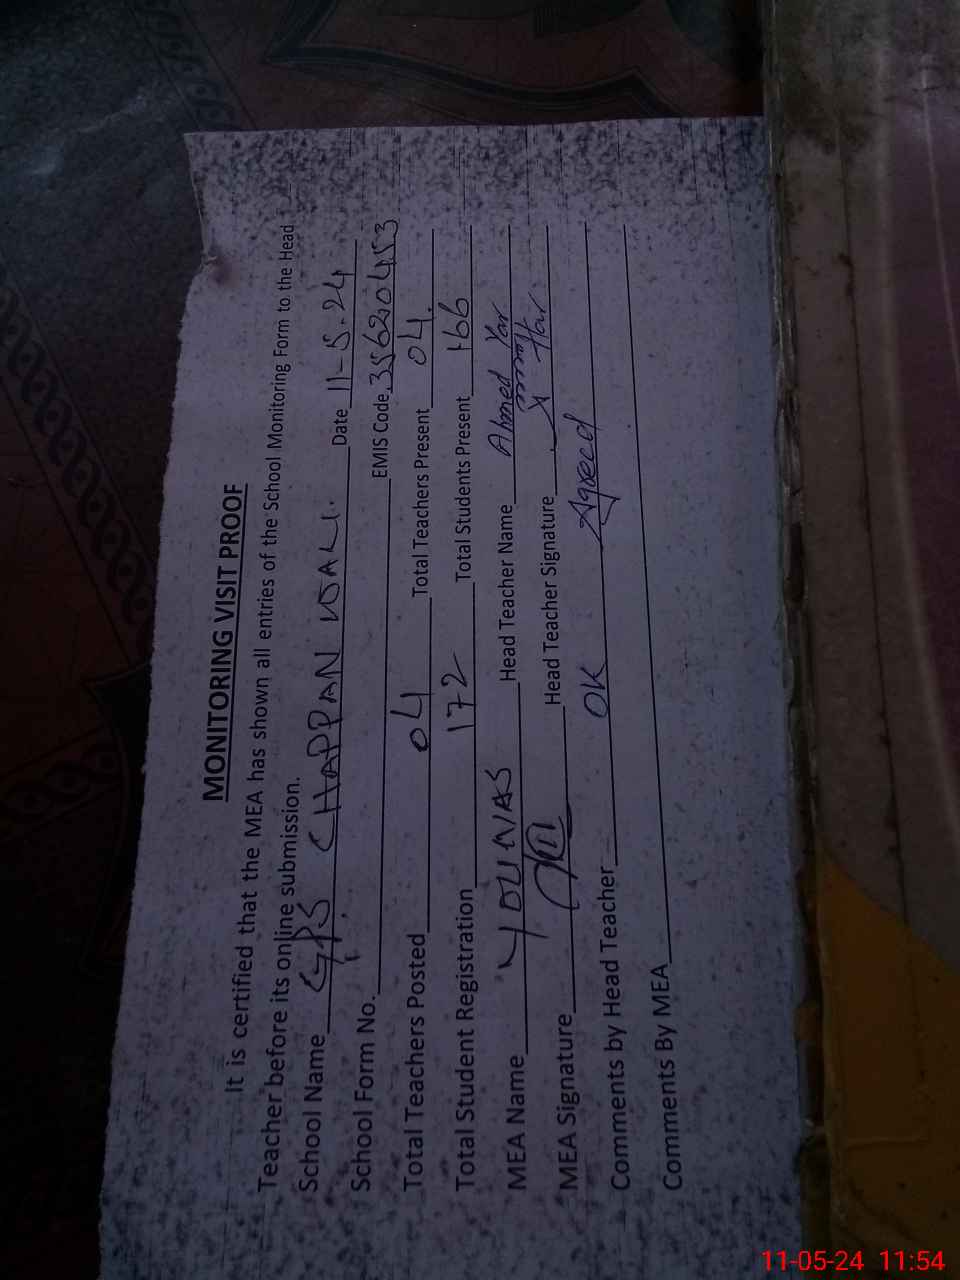 MONITORING VISIT PROOF
It is certified that the MEA has shown all entries of the School Monitoring Form to the Head
Teacher before its online submission.
School Name GPS CHAPPAN WALI. Date 11-5.24
School Form No. EMIS Code 35620453
Total Teachers Posted 04 Total Teachers Present 04.
Total Student Registration 172 Total Students Present 166
MEA Name YOUNAS Head Teacher Name Ahmed Yar
MEA Signature Head Teacher Signature
Comments by Head Teacher OK Agreed
Comments By MEA
11-05-24 11:54